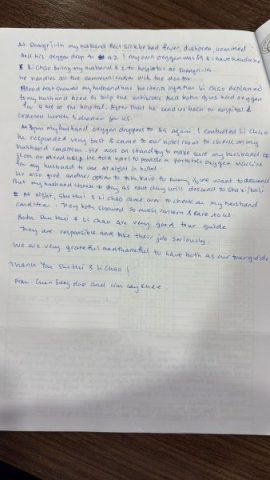 At Shangri-la my husband feel sick he had fever, diahorea, vomitted
and his oxygen drop to 82. My own oxygen was 89 & I have headache
Li Chao bring my husband & I to hospital at Shangri-la.
He handles all the communication with the doctor.
Blood test showed my husband has bacteria infection Li Chao explained
to my husband need to drip the antibiotic and both of us need oxygen
for 2 hrs at the hospital. After that he send us back to hospital &
ordered wonton & dinner for us.
At 8pm my husband oxygen dropped to 82 again I contacted Li Chao
he responded very fast & came to our hotel room to check on my
husband condition. He was on standby to make sure my husband is
He told hotel to provide a portable oxygen machine
for my husband to use at night in hotel.
He also give another option to us to go to if we want to descend
But my husband to stay as next day will descend to
At night, Shu Hui & Li Chao came over to check on my husband
condition. They both showed so much concern & care to us.
Both Shu Hui & Li Chao are very good tour guide
They are responsible and take their job seriously.
We are very grateful and thankful to have both as our tour guide
Thank you Shu Hui & Li Chao!
From: Chan Sang and Lim Lay